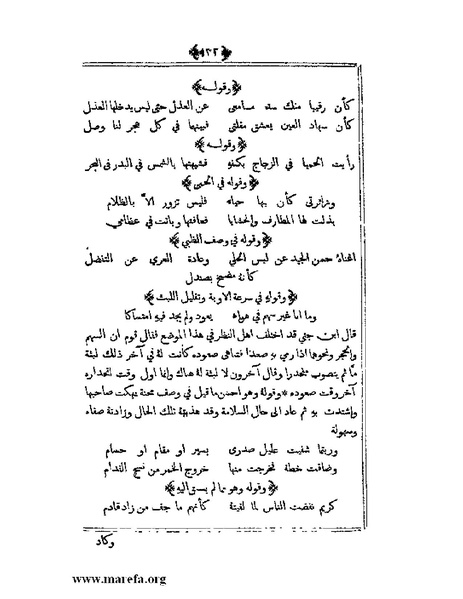 ﴿١٢٢﴾
﴿وقوله﴾
كأن رقيبا منك سد مسامعي عن العذل حتى ليس يدخلها العذل
كأن سهاد العين يعشق مقلتي فبينهما في كل هجر لنا وصل
﴿وقوله﴾
رأيت الحميا في الزجاج بكفه فشبهتها بالشمس في البدر في البحر
﴿وقوله في الحمى﴾
وزائرتي كأن بها حياء فليس تزور الا بالظلام
بذلت لها المطارف والحشايا فعافتها وباتت في عظامي
﴿وقوله في وصف الظبي﴾
اغناه حسن الجيد عن لبس الحلي وعادة العري عن التفضل
كأنه مضمخ بصندل
﴿وقوله في سرعة الاوبة وتقليل اللبث﴾
وما انا غير سهم في هواء يعود ولم يجد فيه امتساكا
قال ابن جني قد اختلف اهل النظر في هذا الموضع فقال قوم ان السهم
والحجر ونحوها اذا رمي به صعدا فتناهى صعوده كانت له في آخر ذلك لبثة
ما ثم يتصوب منحدرا وقال آخرون لا لبثة له هناك وانما اول وقت انحداره
آخر وقت صعوده * وقوله وهو احسن ما قيل في وصف محنة نهكت صاحبها
واشتدت به ثم عاد الى حال السلامة وقد هذبته تلك الحال وزادته صفاء
وسهولة
وربتما شفيت غليل صدري بسير او مقام او حسام
وضاقت خطة فخرجت منها خروج الخمر من نسج الفدام
﴿وقوله وهو مما لم يسبق اليه﴾
كريم نفضت الناس لما لقيته كأنهم ما جف من زاد قادم
وكاد
www.marefa.org